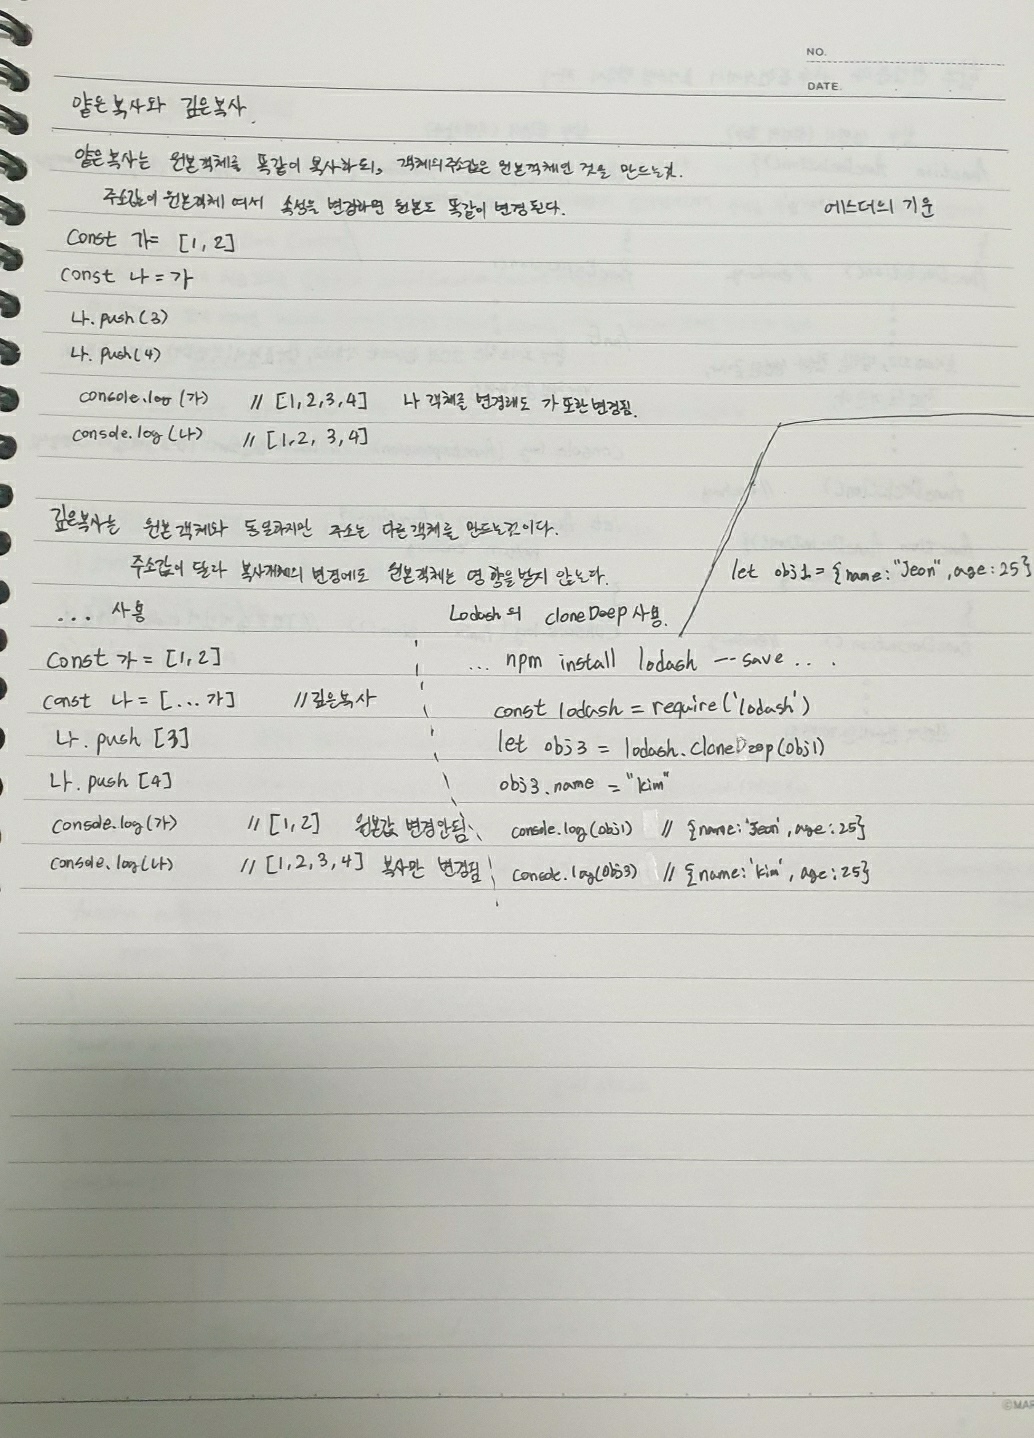 NO.
DATE.
얕은복사와 깊은복사
얕은복사는 원본객체를 똑같이 복사하되, 객체의 주소값은 원본객체인 것을 만드는것.
주소값이 원본객체 여서 속성을 변경하면 원본도 똑같이 변경된다.
에스더의 기운
const 가= [1, 2]
const 나 = 가
나.push(3)
나.push(4)
console.log(가) // [1,2,3,4] 나 객체를 변경해도 가 또한 변경됨.
console.log(나) // [1,2, 3,4]
깊은복사는 원본객체와 동일하지만 주소는 다른객체를 만드는것이다.
주소값이 달라 복사객체의 변경에도 원본객체는 영향을 받지 않는다.
let obj1 = {name:"Jeon", age:25}
... 사용
const 가 = [1,2]
const 나 = [...가] //깊은복사
나.push [3]
나.push [4]
console.log(가) // [1,2] 원본값 변경안됨
console.log(나) // [1,2,3,4] 복사만 변경됨
Lodash의 cloneDeep 사용.
... npm install lodash --save ...
const lodash = require('lodash')
let obj3 = lodash.cloneDeep(obj1)
obj3.name = "kim"
console.log(obj1) // {name:'Jeon', age:25}
console.log(obj3) // {name:'kim', age:25}